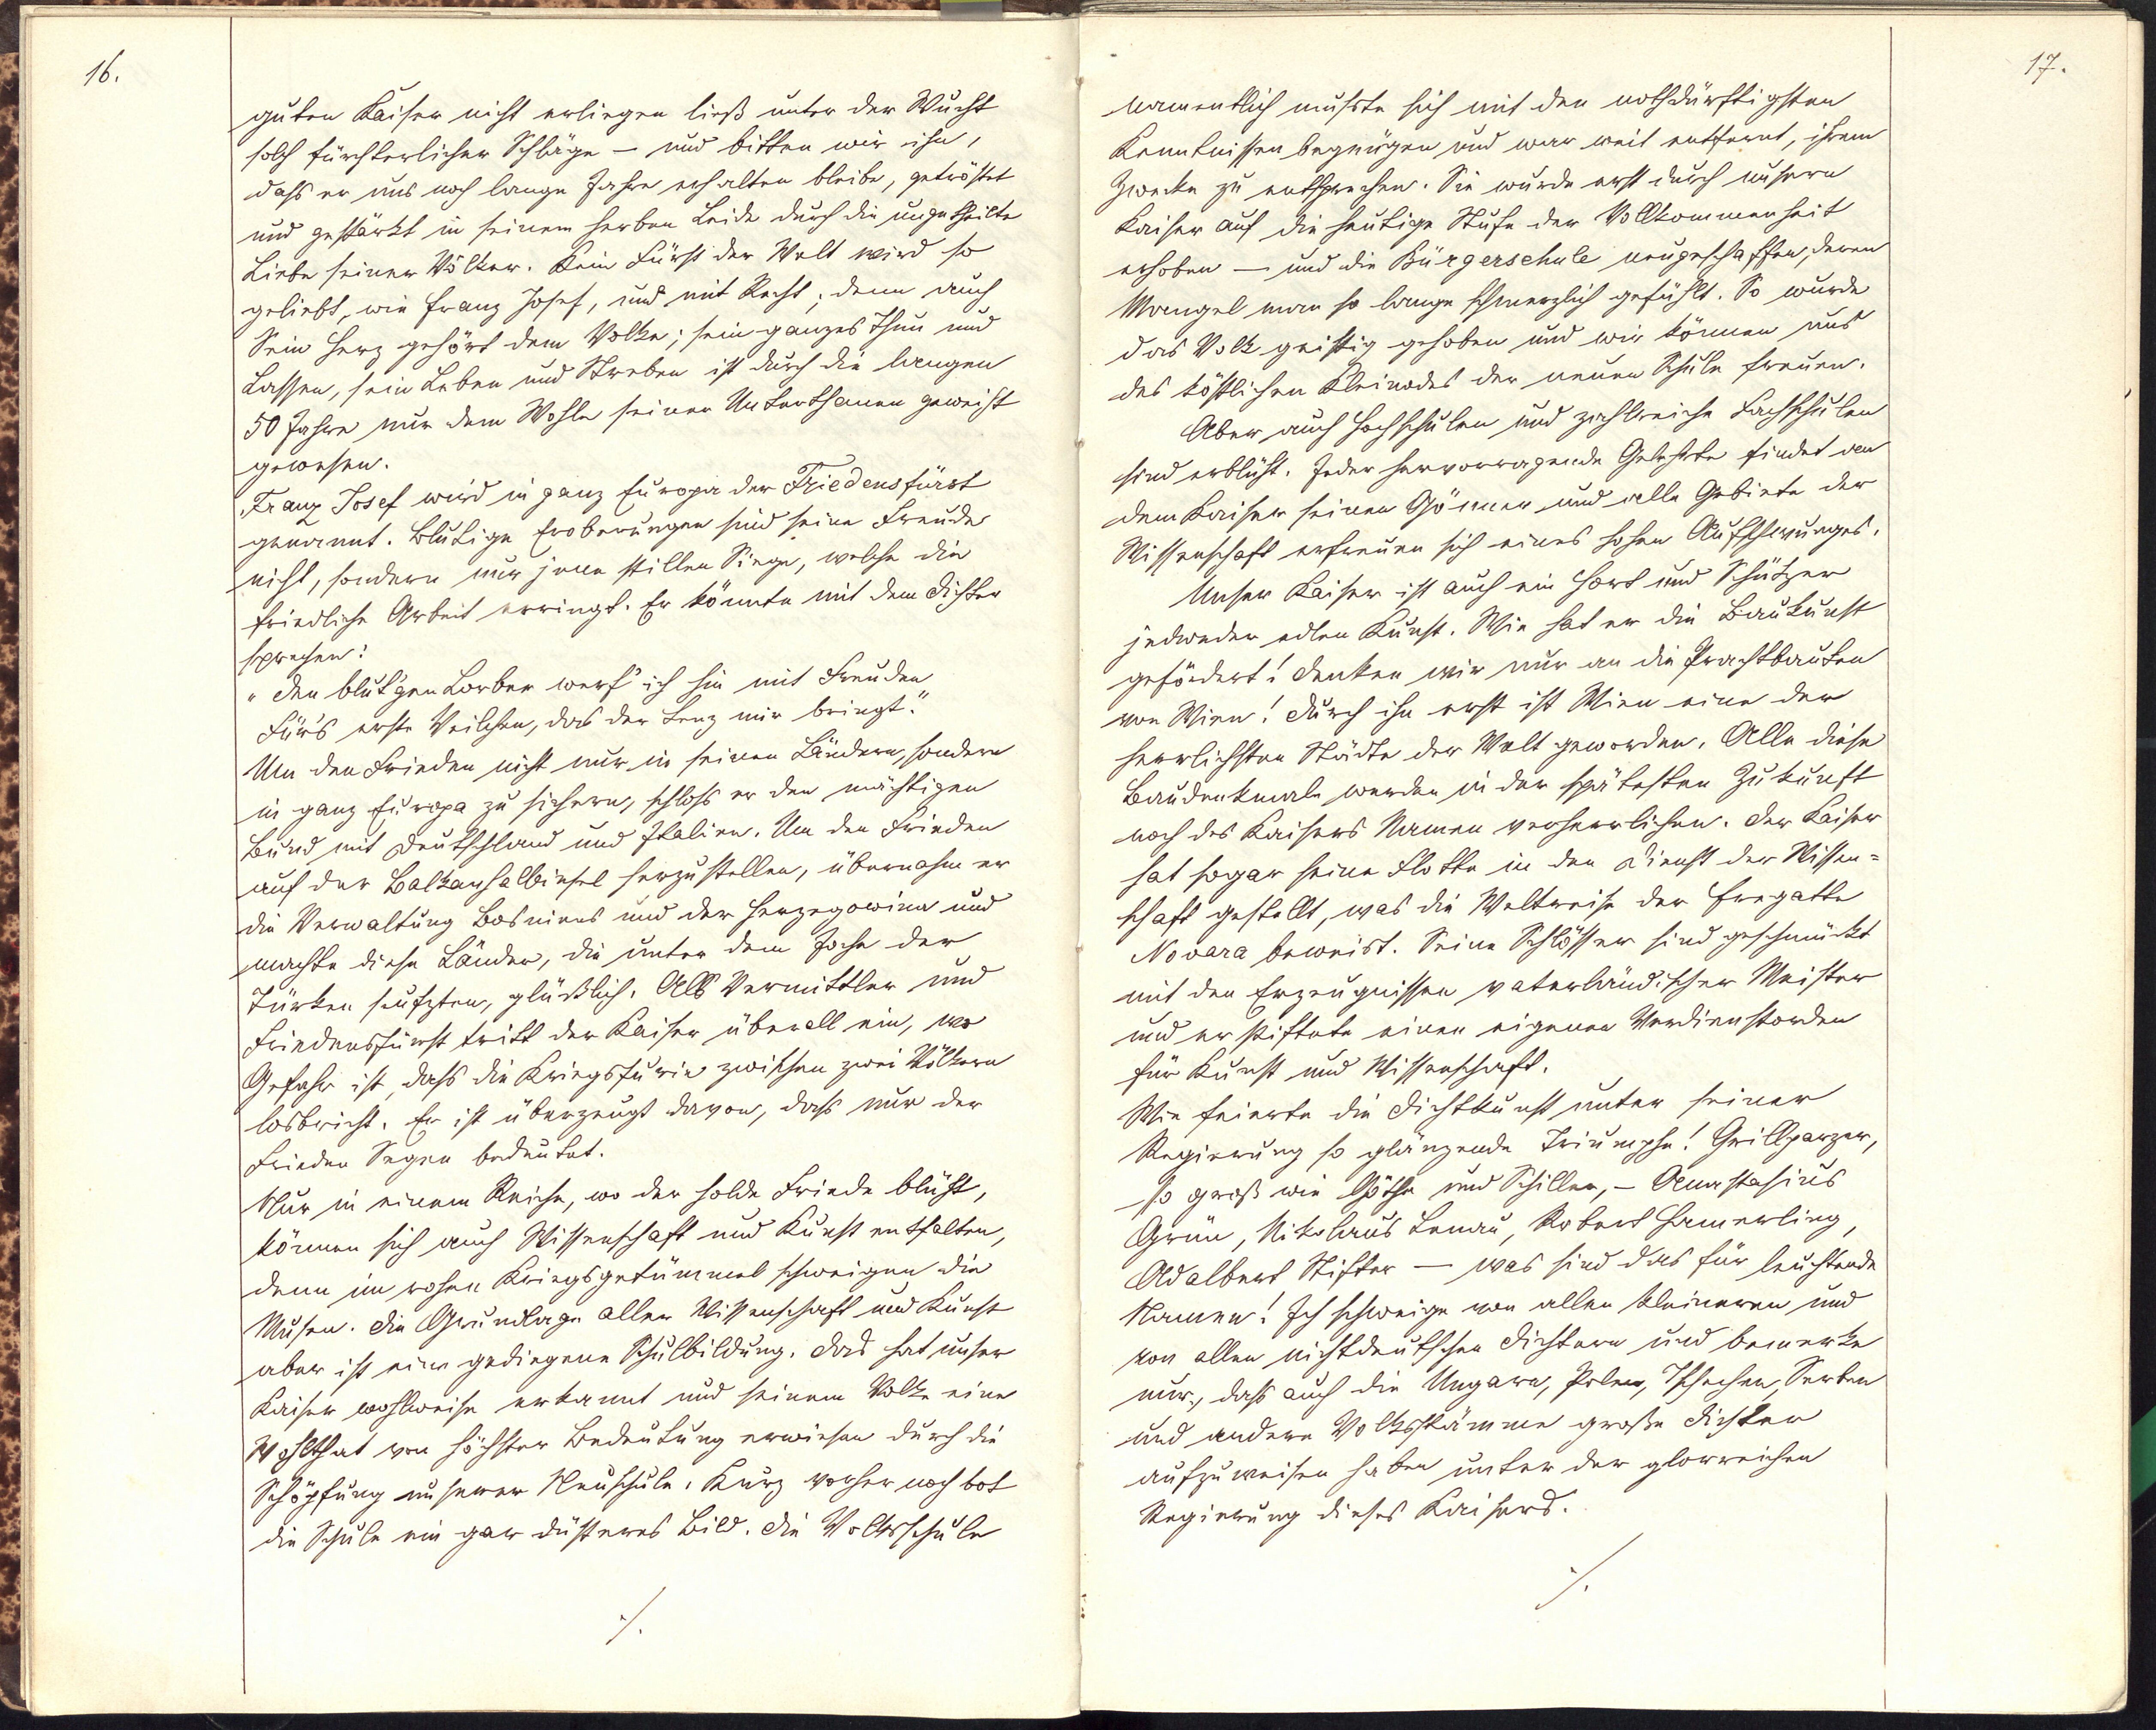 16.
guten Kaiser nicht erliegen ließ unter der Wucht
solch fürchterlicher Schläge — und bitten wir ihn,
dass er uns noch lange Jahre erhalten bleibe, getröstet
und gestärkt in seinem herben Leide durch die ungetheilte
Liebe seiner Völker. Kein Fürst der Welt wird so
geliebt, wie Franz Josef, und mit Recht; denn auch
Sein Herz gehört dem Volke; sein ganzes Thun und
Lassen, sein Leben und Streben ist durch die langen
50 Jahre nur dem Wohle seiner Unterthanen geweiht
gewesen.
Franz Josef wird in ganz Europa der Friedensfürst
genannt. Blutige Eroberungen sind seine Freude
nicht, sondern nur jene stillen Siege, welche die
friedliche Arbeit erringt. Er könnte mit dem Dichter
sprechen:
"Den blut'gen Lorber werf' ich hin mit Freuden
Fürs erste Veilchen, das der Lenz mir bringt."
Um den Frieden nicht nur in seinen Ländern, sondern
in ganz Europa zu sichern, schloss er den mächtigen
Bund mit Deutschland und Italien. Um den Frieden
auf der Balkanhalbinsel herzustellen, übernahm er
die Verwaltung Bosniens und der Herzegowina und
machte diese Länder, die unter dem Joche der
Türken seufzten, glücklich. Als Vermittler und
Friedensfürst tritt der Kaiser überall ein, wo
Gefahr ist, dass die Kriegsfurie zwischen zwei Völkern
losbricht. Er ist überzeugt davon, dass nur der
Frieden Segen bedeutet.
Nur in einem Reiche, wo der holde Friede blüht,
können sich auch Wissenschaft und Kunst entfalten,
denn im rohen Kriegsgetümmel schweigen die
Musen. Die Grundlage aller Wissenschaft und Kunst
aber ist eine gediegene Schulbildung. Das hat unser
Kaiser wohlweise erkannt und seinem Volke eine
Wohlthat von höchster Bedeutung erwiesen durch die
Schöpfung unserer Neuschule. Kurz vorher noch bot
die Schule ein gar düsteres Bild. Die Volksschule
./.
17.
namentlich musste sich mit den nothdürftigsten
Kenntnissen begnügen und war weit entfernt, ihrem
Zwecke zu entsprechen. Sie wurde erst durch unsern
Kaiser auf die heutige Stufe der Vollkommenheit
erhoben — und die Bürgerschule neugeschaffen, deren
Mangel man so lange schmerzlich gefühlt. So wurde
das Volk geistig gehoben und wir können uns
des köstlichen Kleinodes der neuen Schule freuen.
Aber auch Hochschulen und zahlreiche Fachschulen
sind erblüht. Jeder hervorragende Gelehrte findet an
dem Kaiser seinen Gönner und alle Gebiete der
Wissenschaft erfreuen sich eines hohen Aufschwunges.
Unser Kaiser ist auch ein Hort und Schützer
jedweder edlen Kunst. Wie hat er die Baukunst
gefördert! Denken wir nur an die Prachtbauten
von Wien! Durch ihn erst ist Wien eine der
herrlichsten Städte der Welt geworden. Alle diese
Baudenkmale werden in der spätesten Zukunft
noch des Kaisers Namen verherrlichen. Der Kaiser
hat sogar seine Flotte in den Dienst der Wissen=
schaft gestellt, was die Weltreise der Fregatte
Novara beweist. Seine Schlösser sind geschmückt
mit den Erzeugnissen vaterländischer Meister
und er stiftete einen eigenen Verdienstorden
für Kunst und Wissenschaft.
Wie feierte die Dichtkunst unter seiner
Regierung so glänzende Triumphe! Grillparzer,
so groß wie Göthe und Schiller, – Anastasius
Grün, Nikolaus Lenau, Robert Hamerling,
Adalbert Stifter — was sind das für leuchtende
Namen! Ich schweige von allen kleineren und
von allen nichtdeutschen Dichtern und bemerke
nur, dass auch die Ungarn, Polen, Tschechen, Serben
und andere Volksstämme große Dichter
aufzuweisen haben unter der glorreichen
Regierung dieses Kaisers.
./.